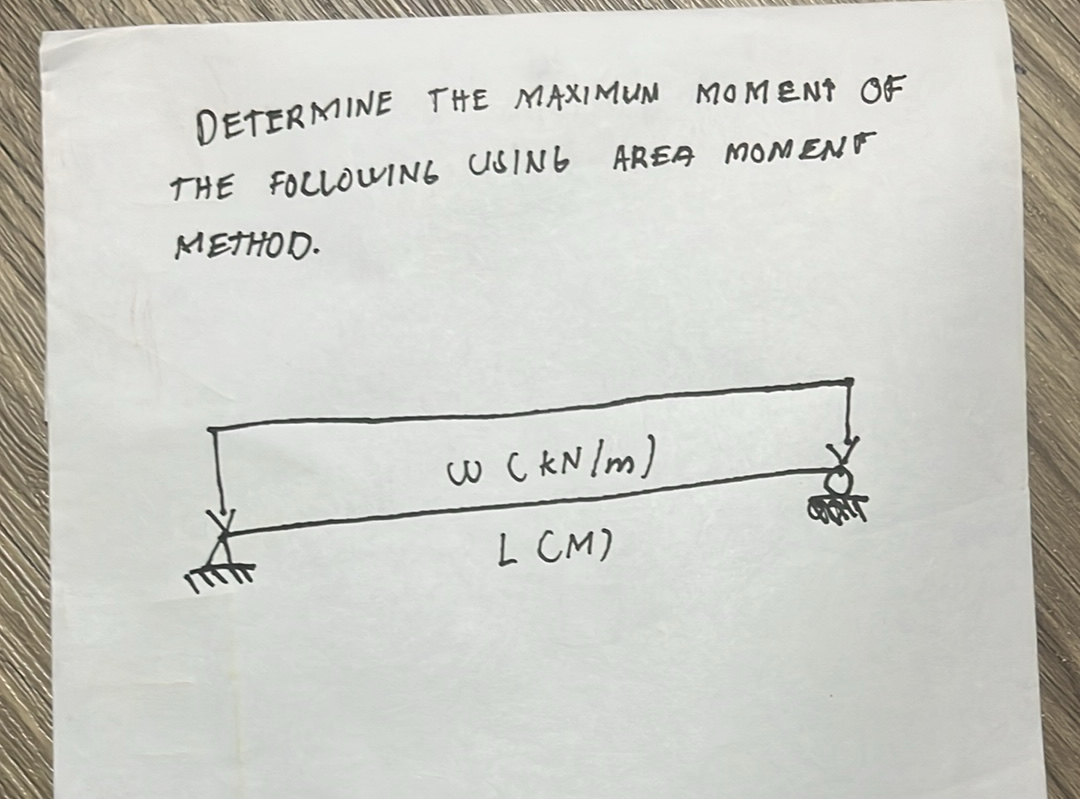 DETERMINE THE MAXIMUM MOMENT OF
THE FOLLOWING USING AREA MOMENT
METHOD.
w (kN/m)
L (M)